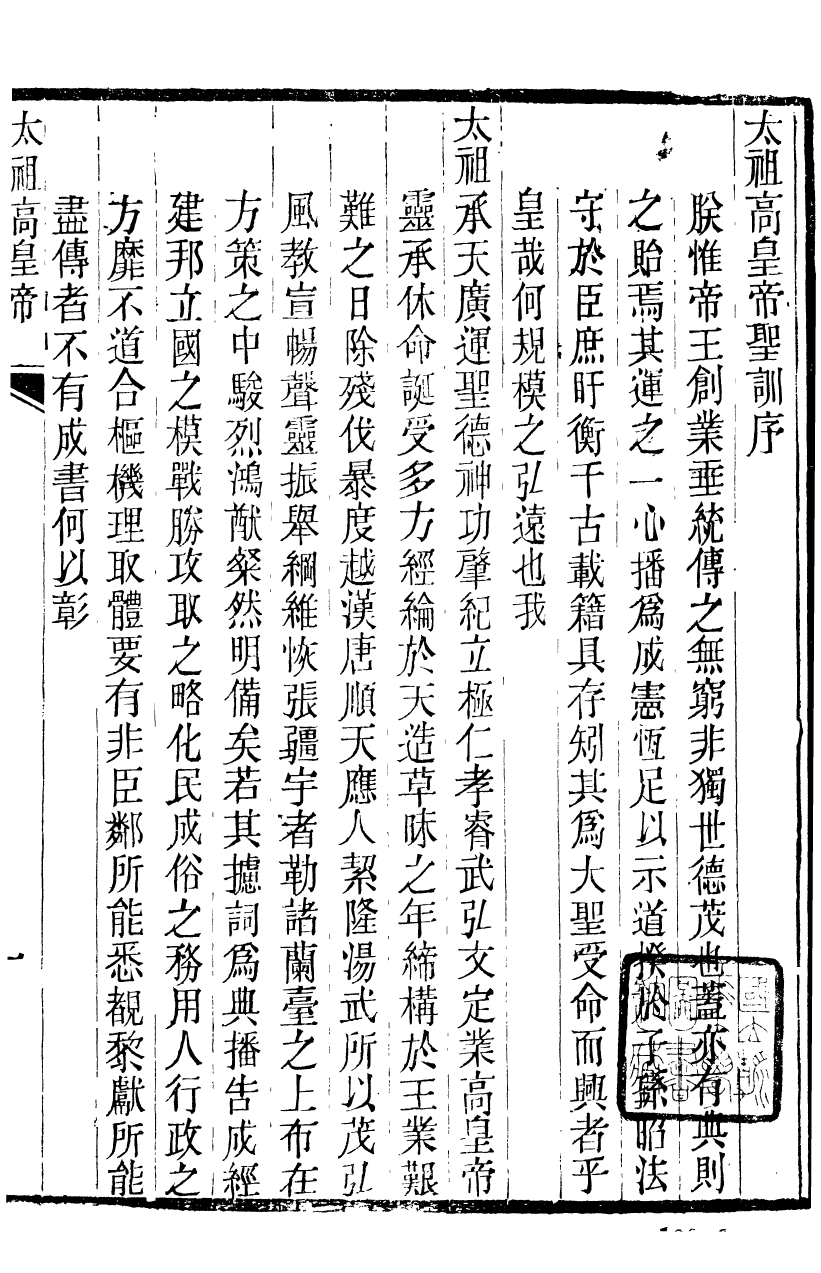 太祖高皇帝聖訓序
朕惟帝王創業垂統傳之無窮非獨世德茂也蓋亦有典則
之貽焉其運之一心播爲成憲恆足以示道揆於子孫昭法
守於臣庶盱衡千古載籍具存矧其爲大聖受命而興者乎
皇哉何規模之弘遠也我
太祖承天廣運聖德神功肇紀立極仁孝睿武弘文定業高皇帝
靈承休命誕受多方經綸於天造草昧之年締構於王業艱
難之日除殘伐暴度越漢唐順天應人絜隆湯武所以茂弘
風教宣暢聲靈振舉綱維恢張疆宇者勒諸蘭臺之上布在
方策之中駿烈鴻猷粲然明備矣若其攄詞爲典播告成經
建邦立國之模戰勝攻取之略化民成俗之務用人行政之
方靡不道合樞機理取體要有非臣鄰所能悉覩黎獻所能
盡傳者不有成書何以彰
太祖高皇帝
一